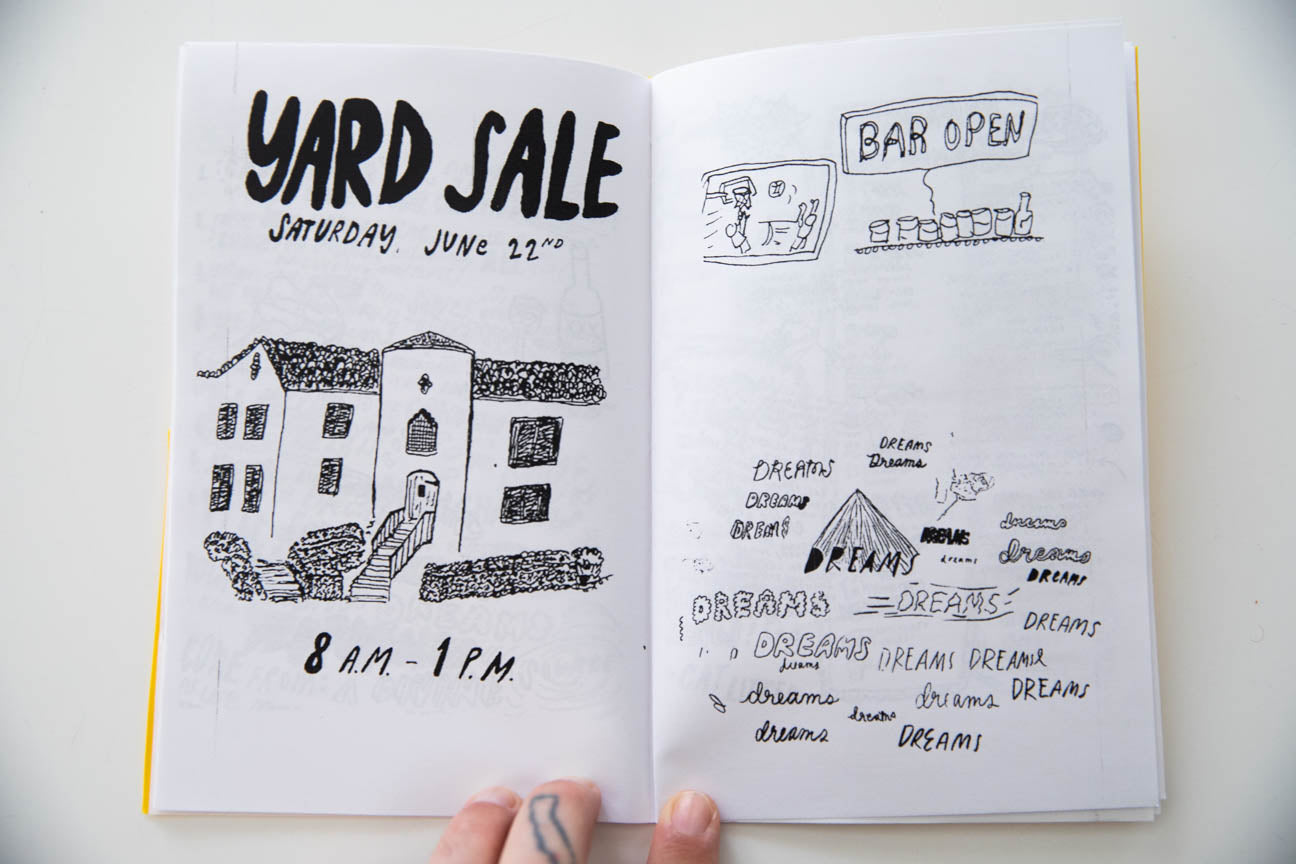 YARD SALE
SATURDAY, JUNE 22ND
8 A.M. - 1 P.M.
BAR OPEN
DREAMS
Dreams
DREAMS
DREAMS
DREAMS
DREAMS
DREAMS
dreams
dreams
dreams
DREAMS
DREAMS
DREAMS
DREAMS
DREAMS
dreams
DREAMS DREAMS
dreams
dreams
DREAMS
dreams
dreams
DREAMS